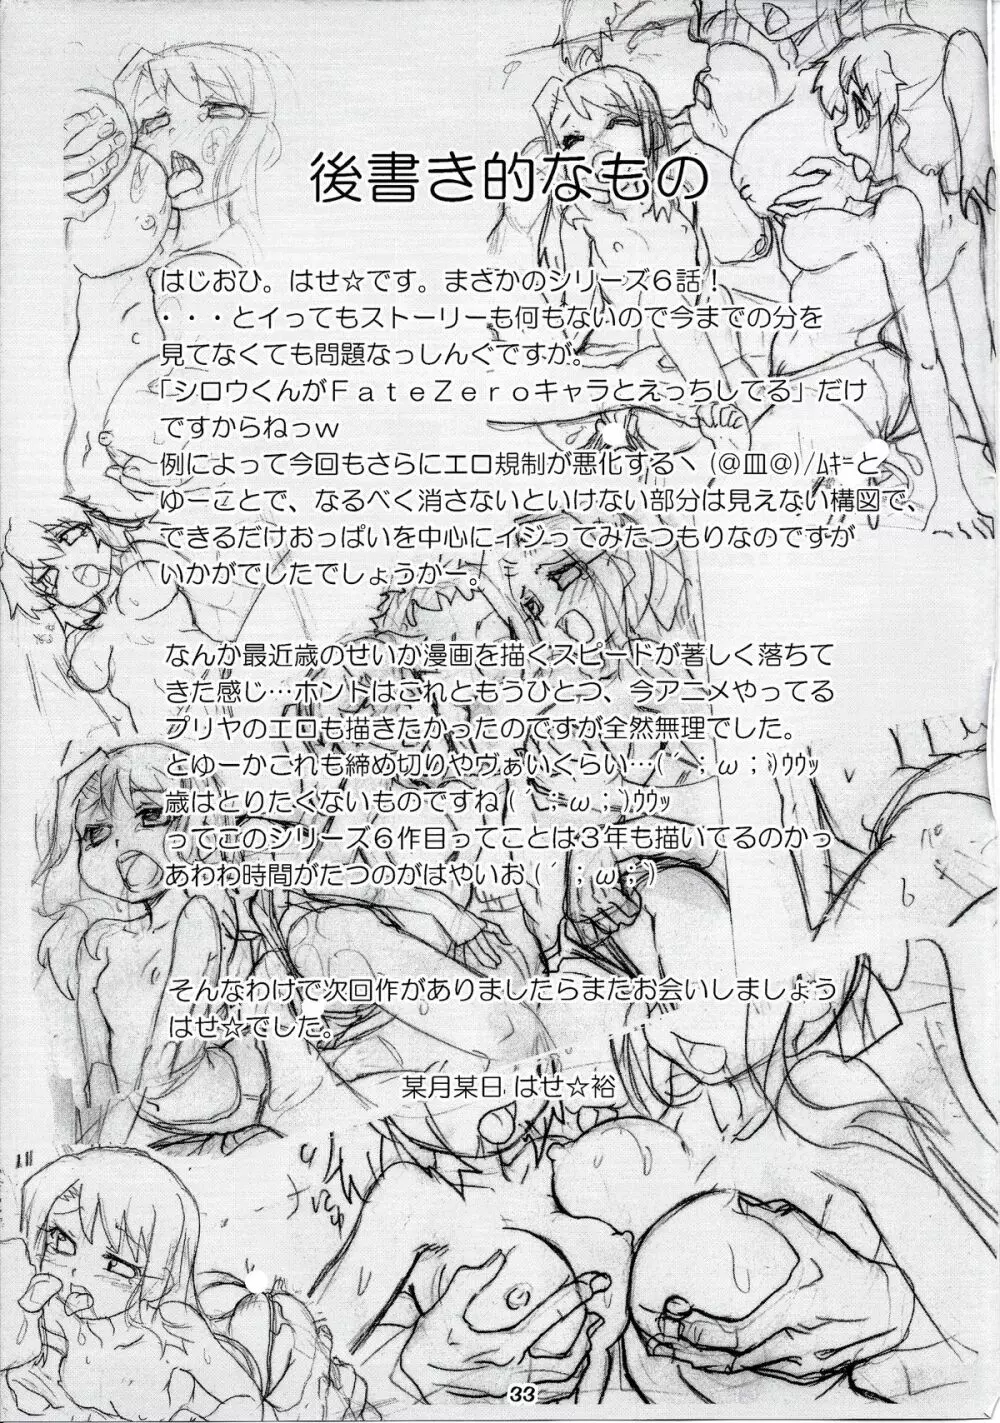 後書き的なもの
はじおひ。はせ☆です。まさかのシリーズ６話！
・・・とイってもストーリーも何もないので今までの分を
見てなくても問題なっしんぐですが。
「シロウくんがＦａｔｅＺｅｒｏキャラとえっちしてる」だけ
ですからねっｗ
例によって今回もさらにエロ規制が悪化するヽ(@皿@)/ﾑｷｰと
ゆーことで、なるべく消さないといけない部分は見えない構図で、
できるだけおっぱいを中心にイジってみたつもりなのですが
いかがでしたでしょうかー。
なんか最近歳のせいか漫画を描くスピードが著しく落ちて
きた感じ…ホントはこれともうひとつ、今アニメやってる
プリヤのエロも描きたかったのですが全然無理でした。
とゆーかこれも締め切りやヴぁいくらい…(´；ω；`)ｳｳｯ
歳はとりたくないものですね(´；ω；`)ｳｳｯ
ってこのシリーズ６作目ってことは３年も描いてるのかっ
あわわ時間がたつのがはやいお(´；ω；`)
そんなわけで次回作がありましたらまたお会いしましょう
はせ☆でした。
某月某日 はせ☆裕
33